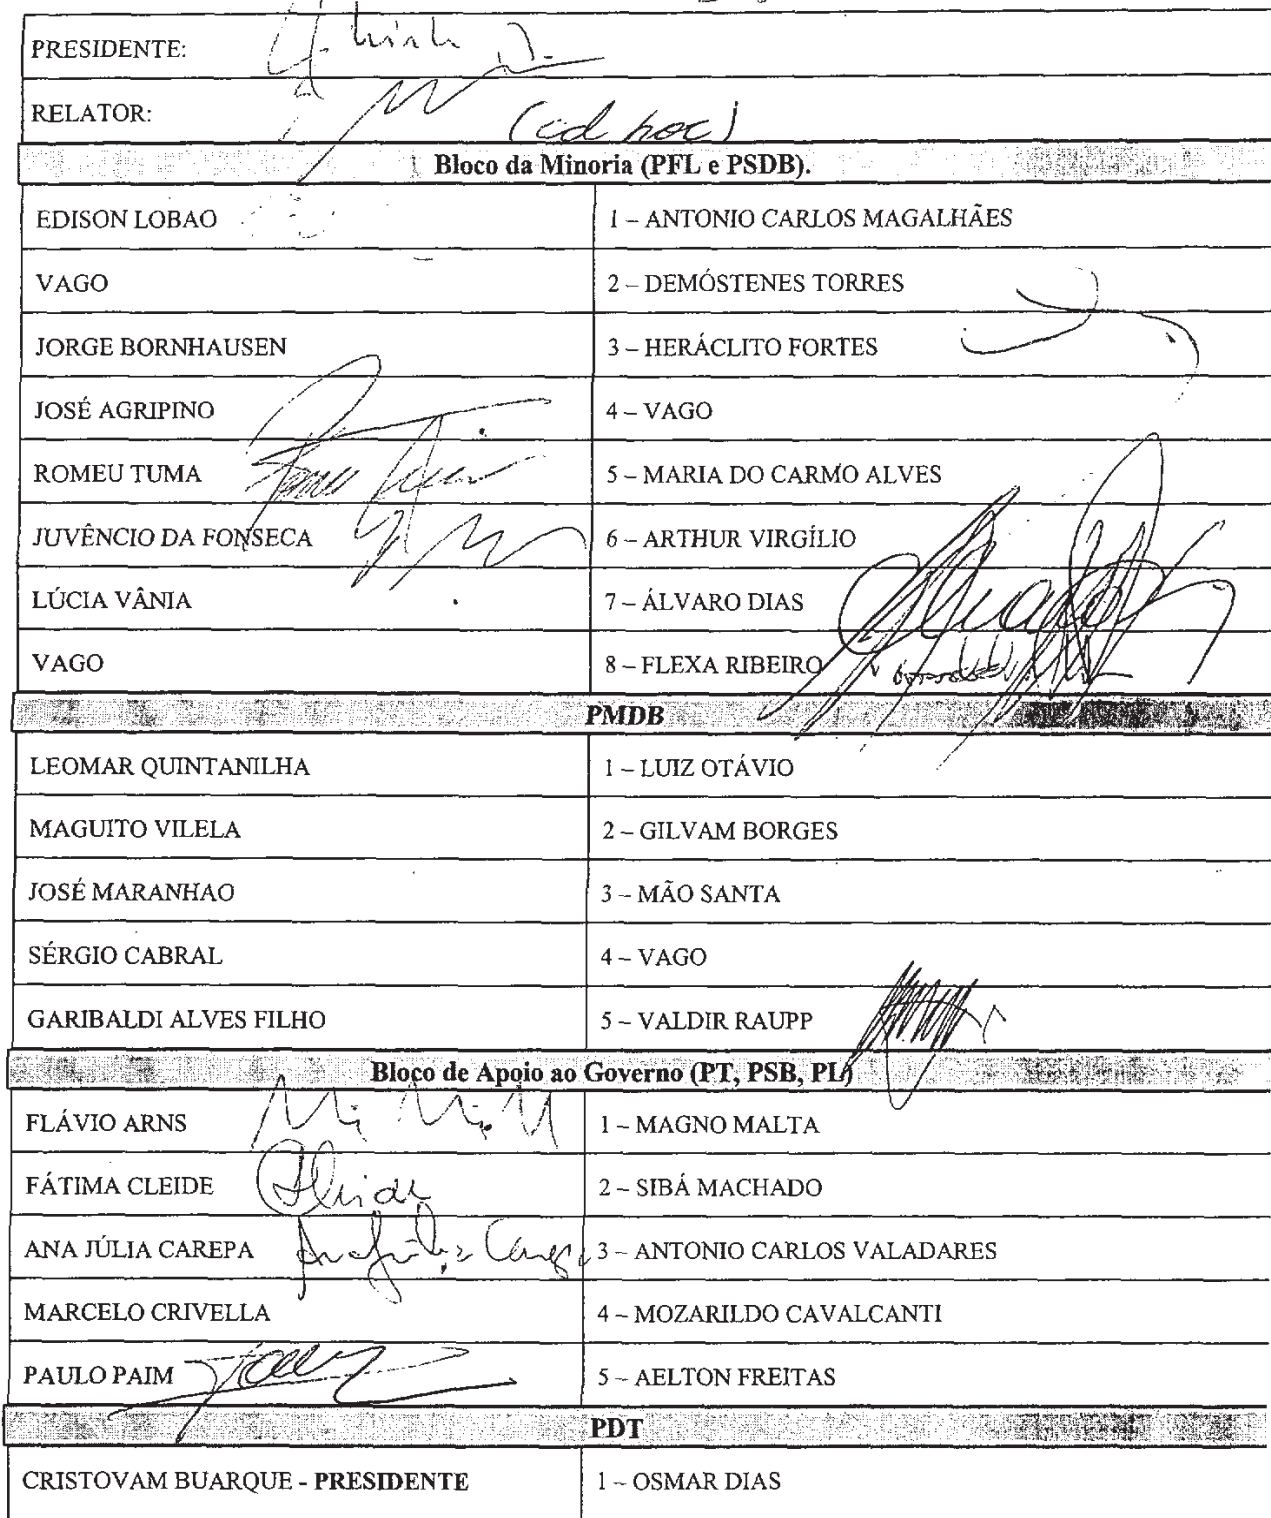 PRESIDENTE:
RELATOR: (ad hoc)
Bloco da Minoria (PFL e PSDB).
EDISON LOBAO 1 – ANTONIO CARLOS MAGALHÃES
VAGO 2 – DEMÓSTENES TORRES
JORGE BORNHAUSEN 3 – HERÁCLITO FORTES
JOSÉ AGRIPINO 4 – VAGO
ROMEU TUMA 5 – MARIA DO CARMO ALVES
JUVÊNCIO DA FONSECA 6 – ARTHUR VIRGÍLIO
LÚCIA VÂNIA 7 – ÁLVARO DIAS
VAGO 8 – FLEXA RIBEIRO
PMDB
LEOMAR QUINTANILHA 1 – LUIZ OTÁVIO
MAGUITO VILELA 2 – GILVAM BORGES
JOSÉ MARANHAO 3 – MÃO SANTA
SÉRGIO CABRAL 4 – VAGO
GARIBALDI ALVES FILHO 5 – VALDIR RAUPP
Bloco de Apoio ao Governo (PT, PSB, PL)
FLÁVIO ARNS 1 – MAGNO MALTA
FÁTIMA CLEIDE 2 – SIBÁ MACHADO
ANA JÚLIA CAREPA Ana Júlia Carepa 3 – ANTONIO CARLOS VALADARES
MARCELO CRIVELLA 4 – MOZARILDO CAVALCANTI
PAULO PAIM 5 – AELTON FREITAS
PDT
CRISTOVAM BUARQUE - PRESIDENTE 1 – OSMAR DIAS